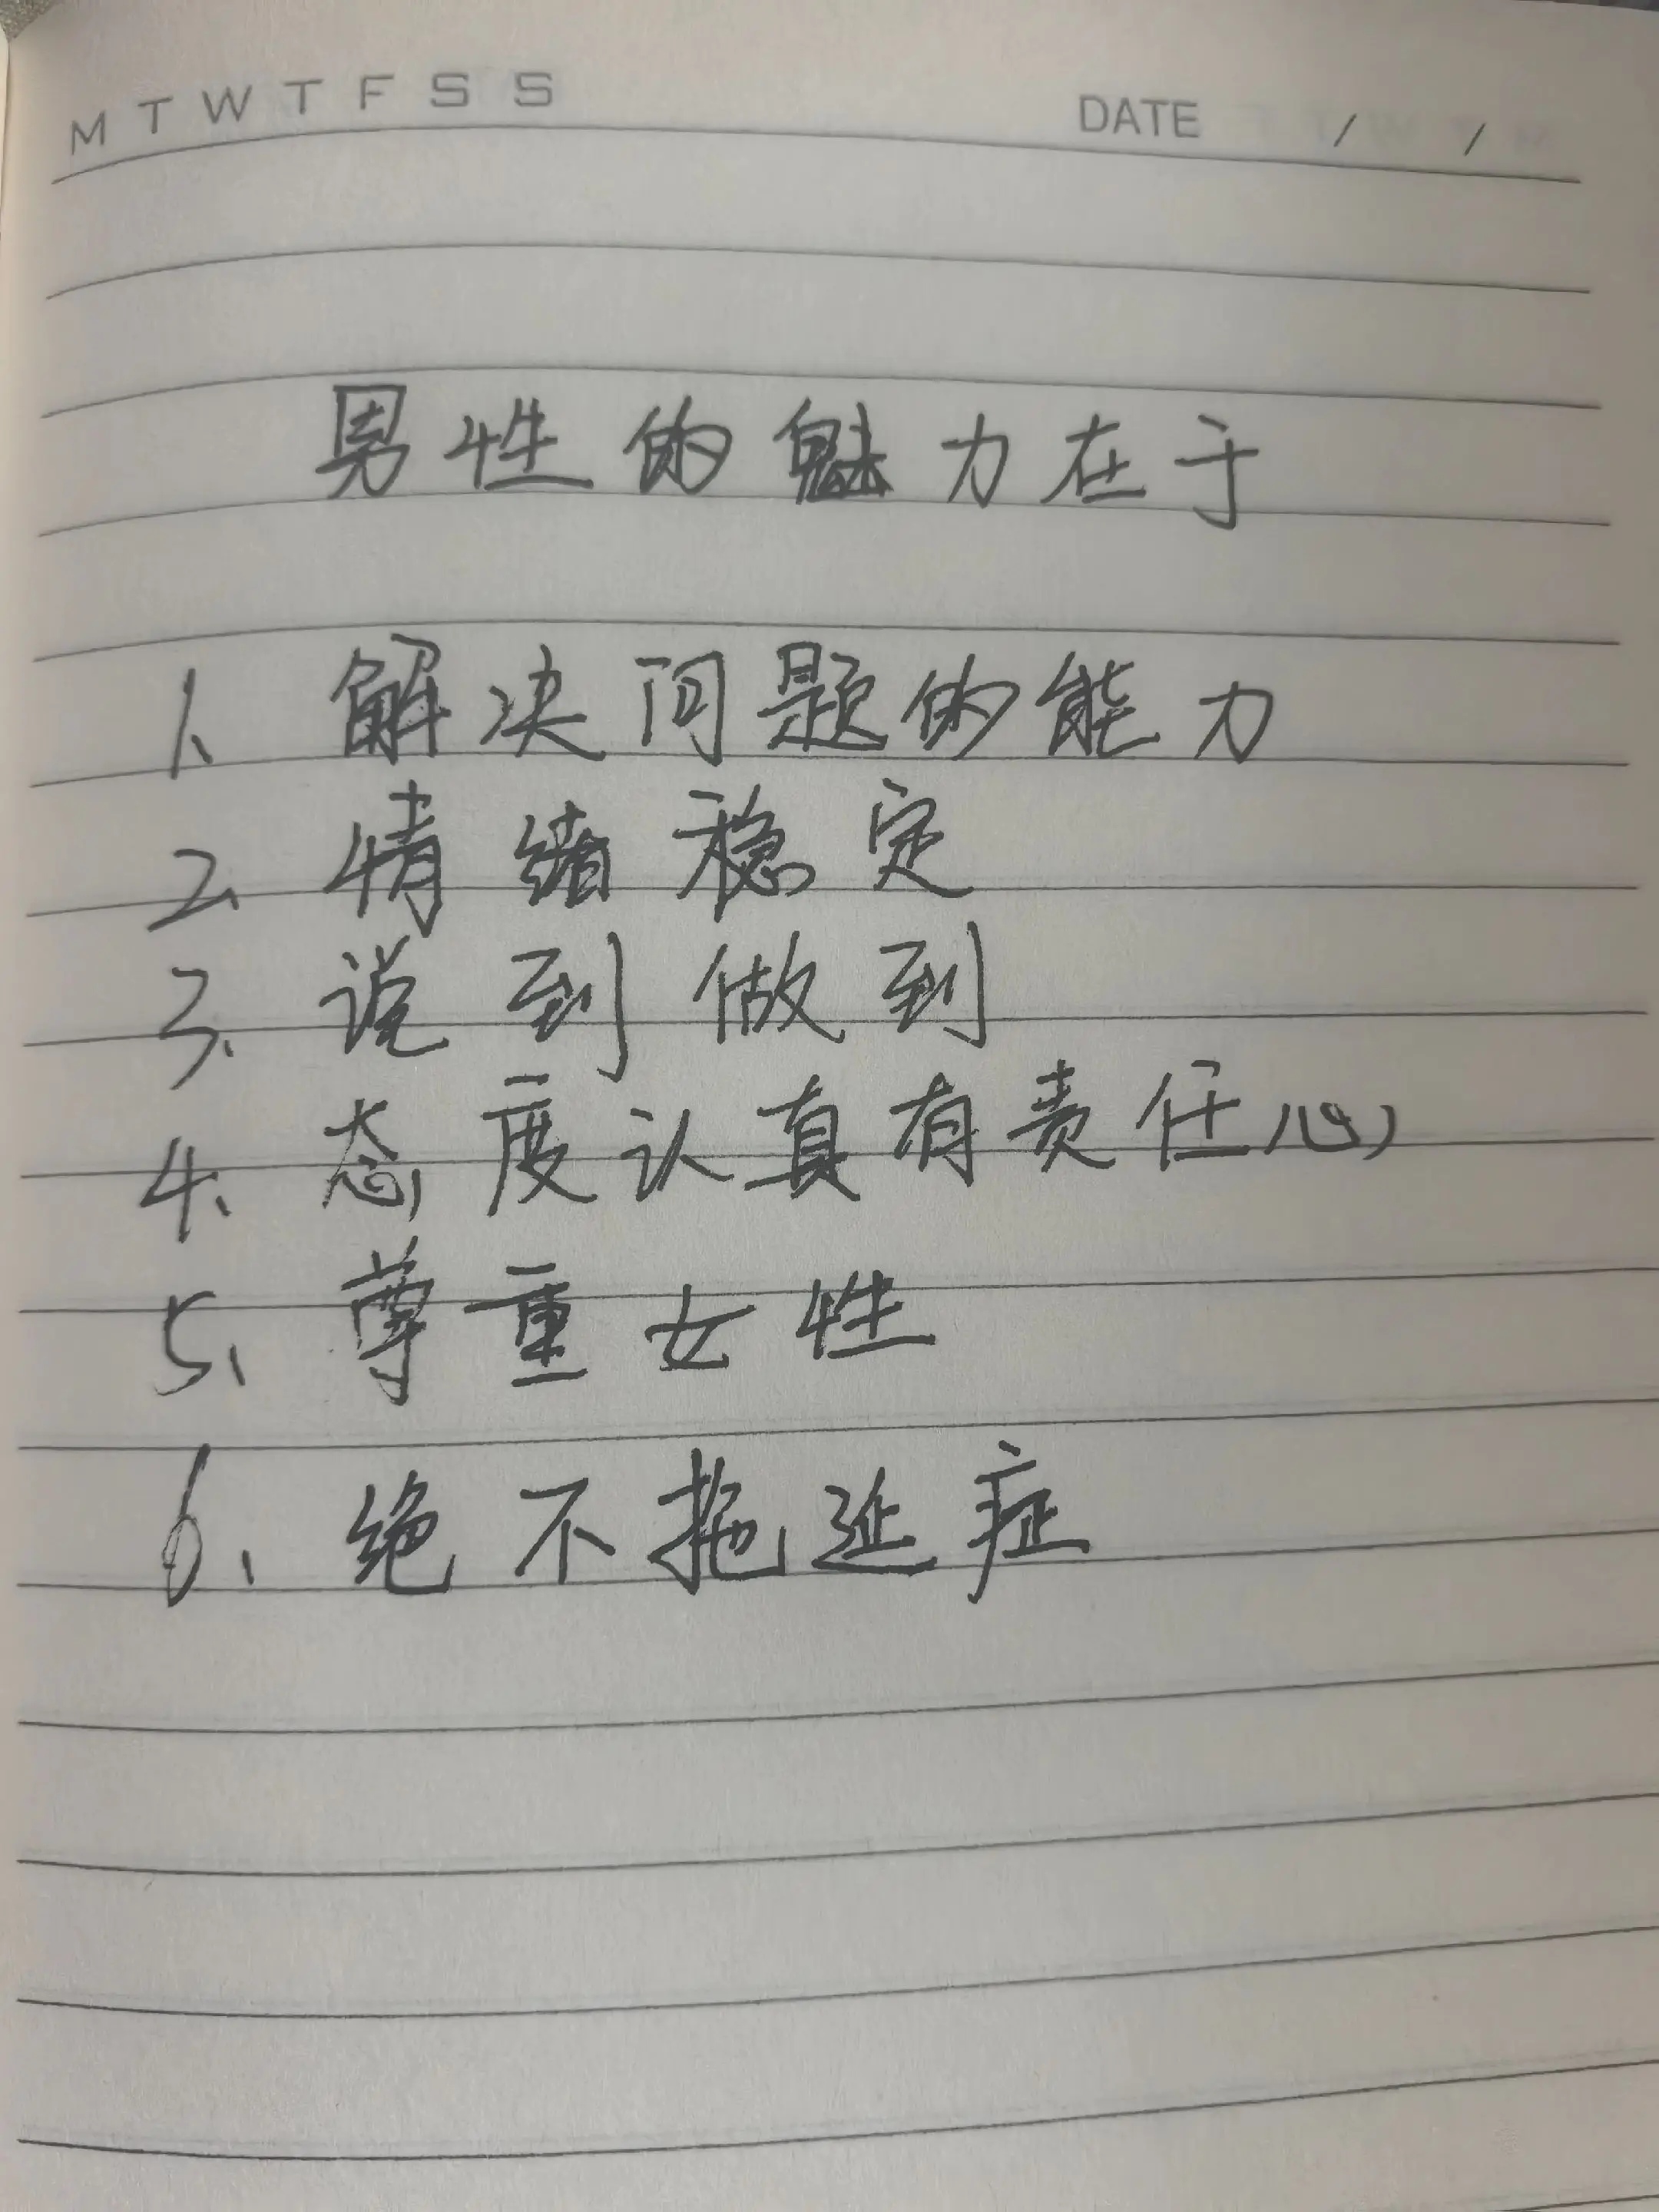 M T W T F S S
DATE / /
男性的魅力在于
1、解决问题的能力
2、情绪稳定
3、说到做到
4、态度认真有责任心
5、尊重女性
6、绝不拖延症